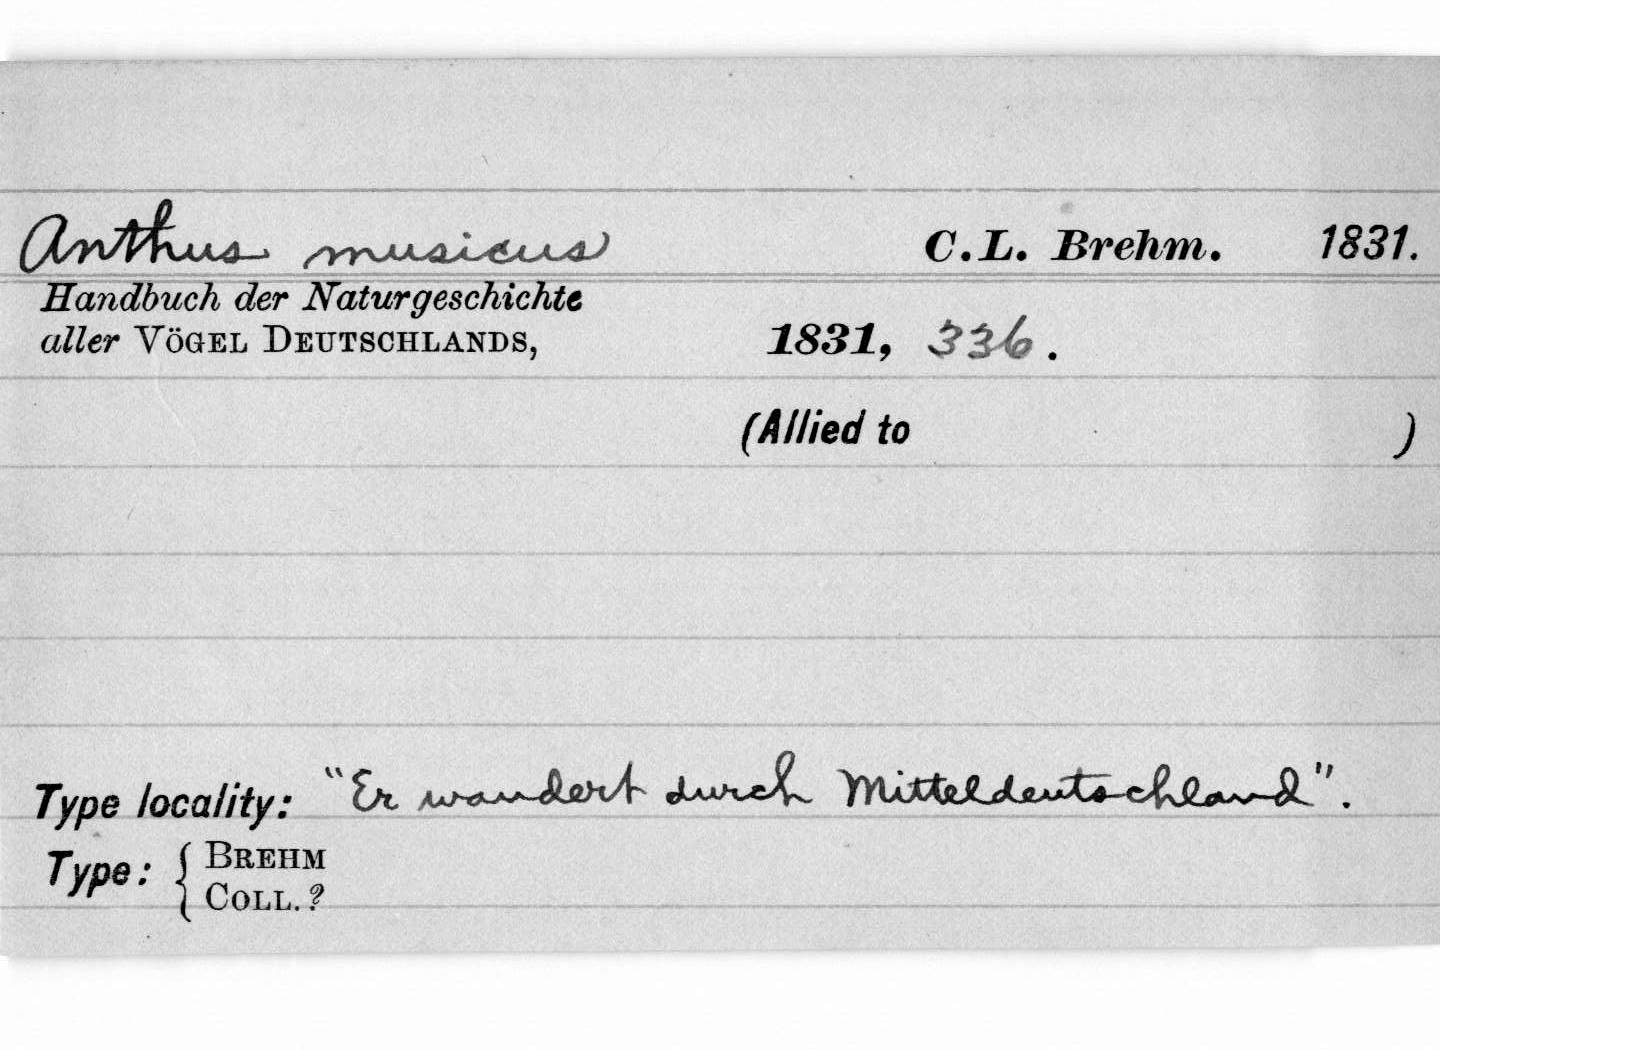 Anthus musicus C.L. Brehm. 1831.
Handbuch der Naturgeschichte
aller VÖGEL DEUTSCHLANDS, 1831, 336.
(Allied to )
Type locality: "Er wandert durch Mitteldeutschland".
Type: { BREHM
COLL.?